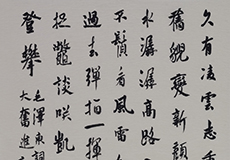 久有凌雲志
舊貌變新顏
水潺潺高路
不須看風雷
過去彈指一揮
捉鱉談咲凱
登攀
毛澤東詞